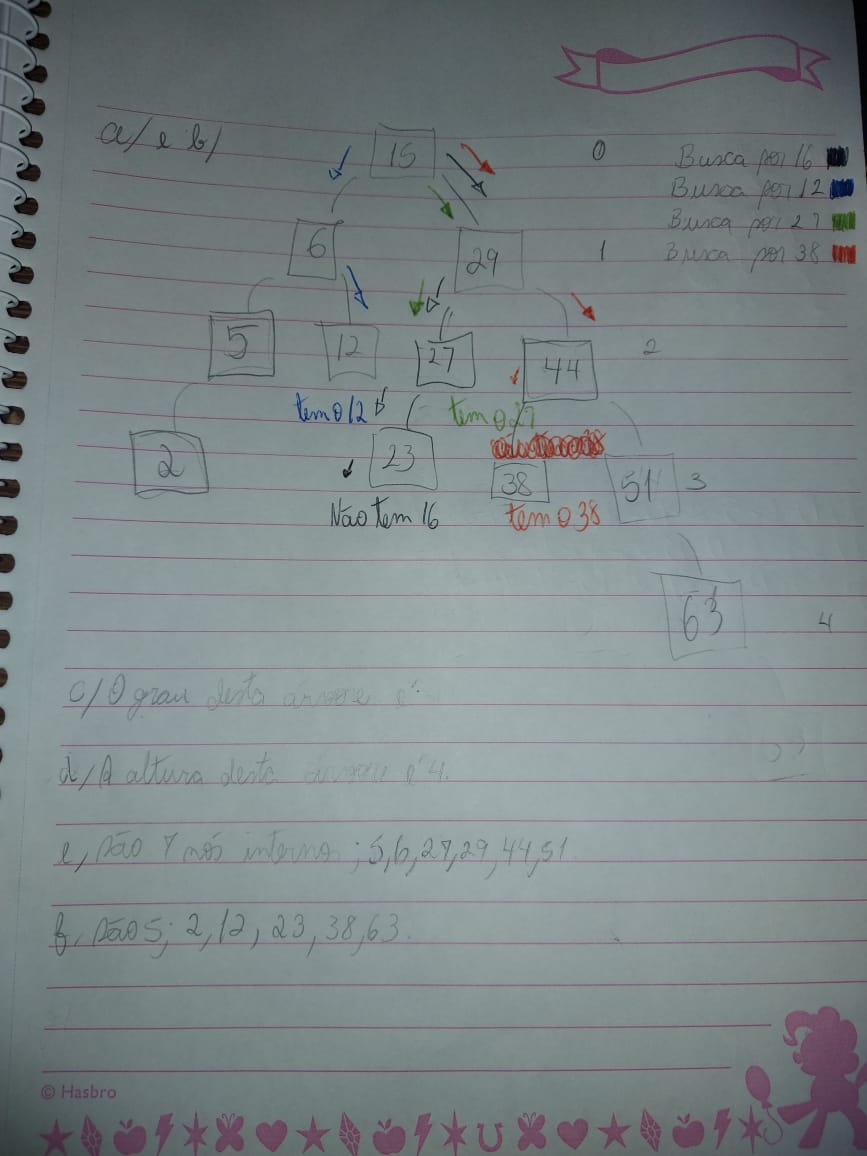 a/ e b/
15
0
Busca por 16
Busca por 12
Busca por 27
Busca por 38
6
29
1
5
12
27
44
2
tem o 12
tem o 27
2
23
38
51
3
Não tem 16
tem o 38
63
4
c/ O grau desta árvore é:
d/ A altura desta árvore é 4.
e, são 7 nós internos; 5,6,27,29,44,51
f, são 5; 2,12, 23, 38,63.
© Hasbro